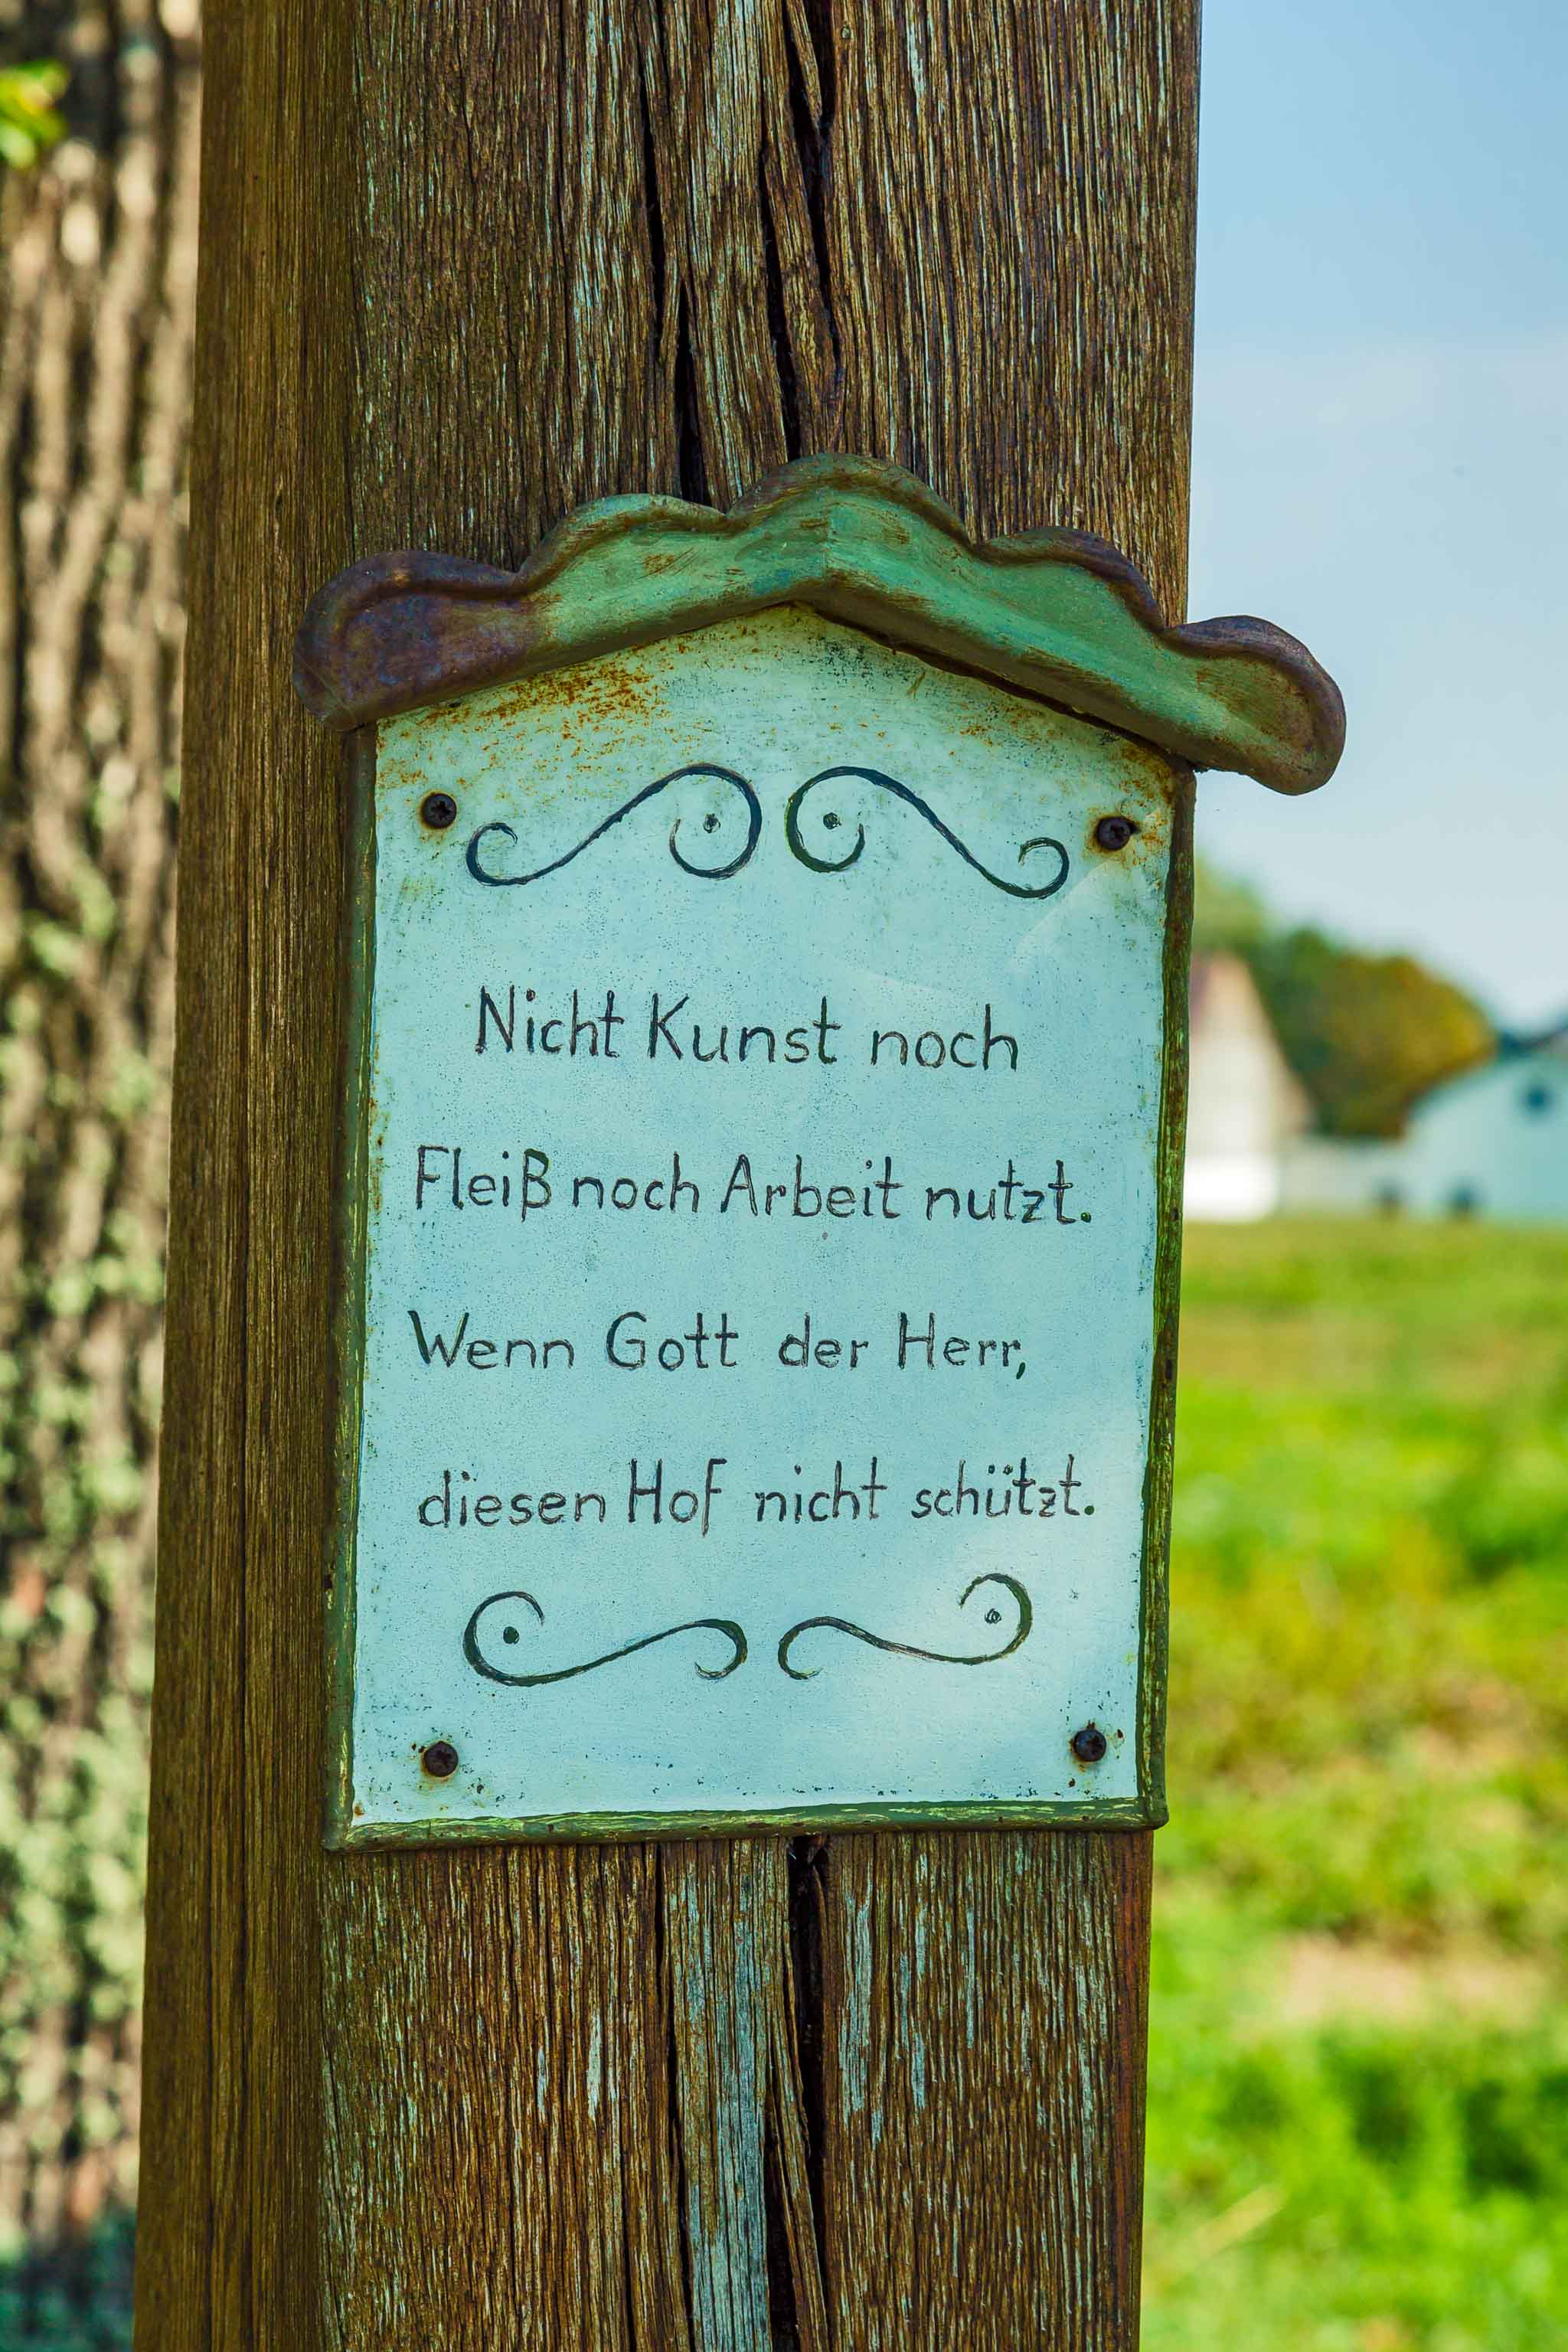 Nicht Kunst noch
Fleiß noch Arbeit nutzt.
Wenn Gott der Herr,
diesen Hof nicht schützt.